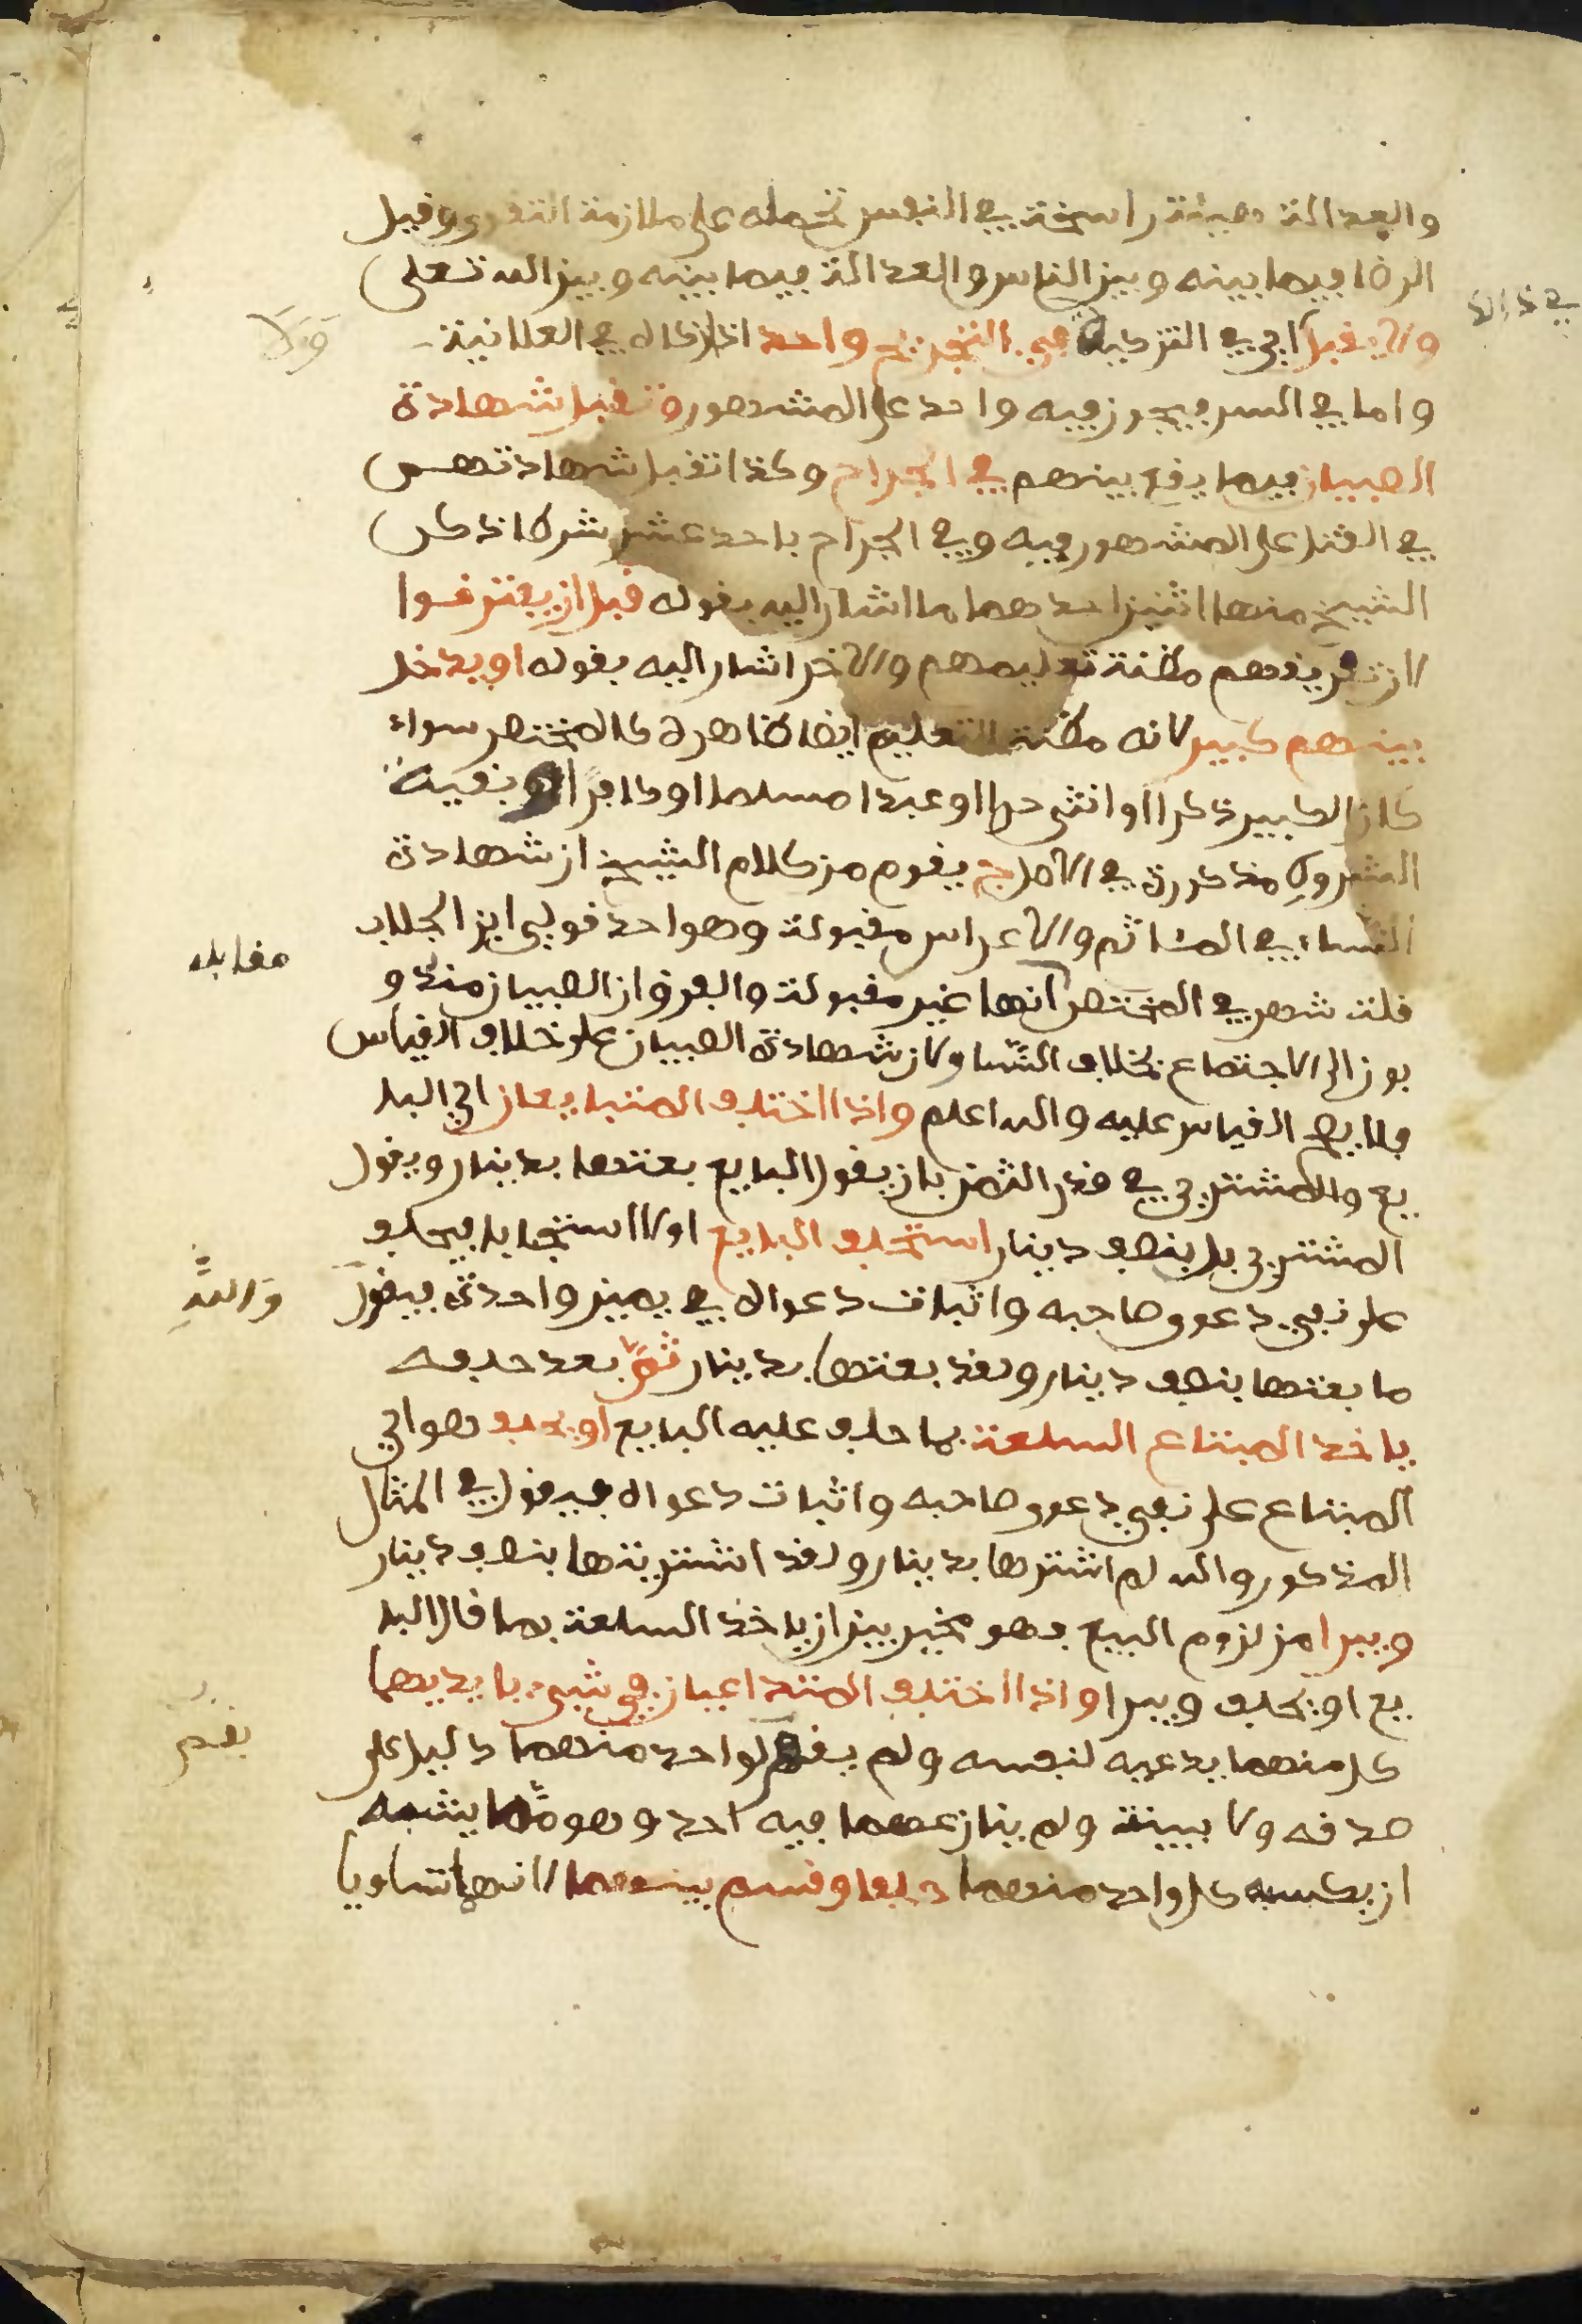 والعدالة هيئة راسخة في النفس تحمله على ملازمة التقوى وقيل
الرضا فيما بينه وبين الناس والعدالة فيما بينه وبين الله تعلى
ولا يقبل اي في التزكية في التجريح واحد اذا كان في العلانية
ولا
واما في السر فيجوز فيه واحد على المشهور وتقبل شهادة
الصبيان فيما يقع بينهم في الجراح وكذا تقبل شهادتهم
في القتل على المشهور فيه وفي الجراح باحد عشر شرطا ذكر
الشيخ منها اثنين احدهما ما اشار اليه بقوله قبل ان يفترقوا
لان تفريقهم مظنة تعليمهم والاخر اشار اليه بقوله او يدخل
بينهم كبير لانه مظنة التعليم ايضا ظاهره كالمختصر سواء
كان الكبير ذكرا او انثى حرا او عبدا مسلما او كافرا وبقية
الشروط مذكورة في الاصل ج يقوم من كلام الشيخ ان شهادة
النساء في المئاتم والاعراس مقبولة وهو احد قولي ابن الجلاب
مقابله
قلت شهر في المختصر انها غير مقبولة والفرق ان الصبيان مندو
بون الى الاجتماع بخلاف النسا ولان شهادة الصبيان على خلاف القياس
فلا يصح القياس عليه والله اعلم واذا اختلف المتبايعان اي البا
يع والمشتري في قدر الثمن بان يقول البايع بعتها بدينار ويقول
المشتري بل بنصف دينار استحلف البايع اولا استحبابا فيحلف
على نفي دعوى صاحبه واثبات دعواه في يمين واحدة فيقول
والله
ما بعتها بنصف دينار ولقد بعتها بدينار ثم بعد حلفه
ياخذ المبتاع السلعة بما حلف عليه البايع او يحلف هو اي
المبتاع على نفي دعوى صاحبه واثبات دعواه فيقول في المثال
المذكور والله لم اشترها بدينار ولقد اشتريتها بنصف دينار
ويبرا من لزوم البيع فهو مخير بين ان ياخذ السلعة بما قال البا
يع او يحلف ويبرا واذا اختلف المتداعيان في شيء بايديهما
كل منهما يدعيه لنفسه ولم يقم لواحد منهما دليل على
يقم
صدقه ولا بينة ولم ينازعهما فيه احد وهو مما يشبه
ان يكسبه كل واحد منهما حلفا وقسم بينهما لانهما تساويا